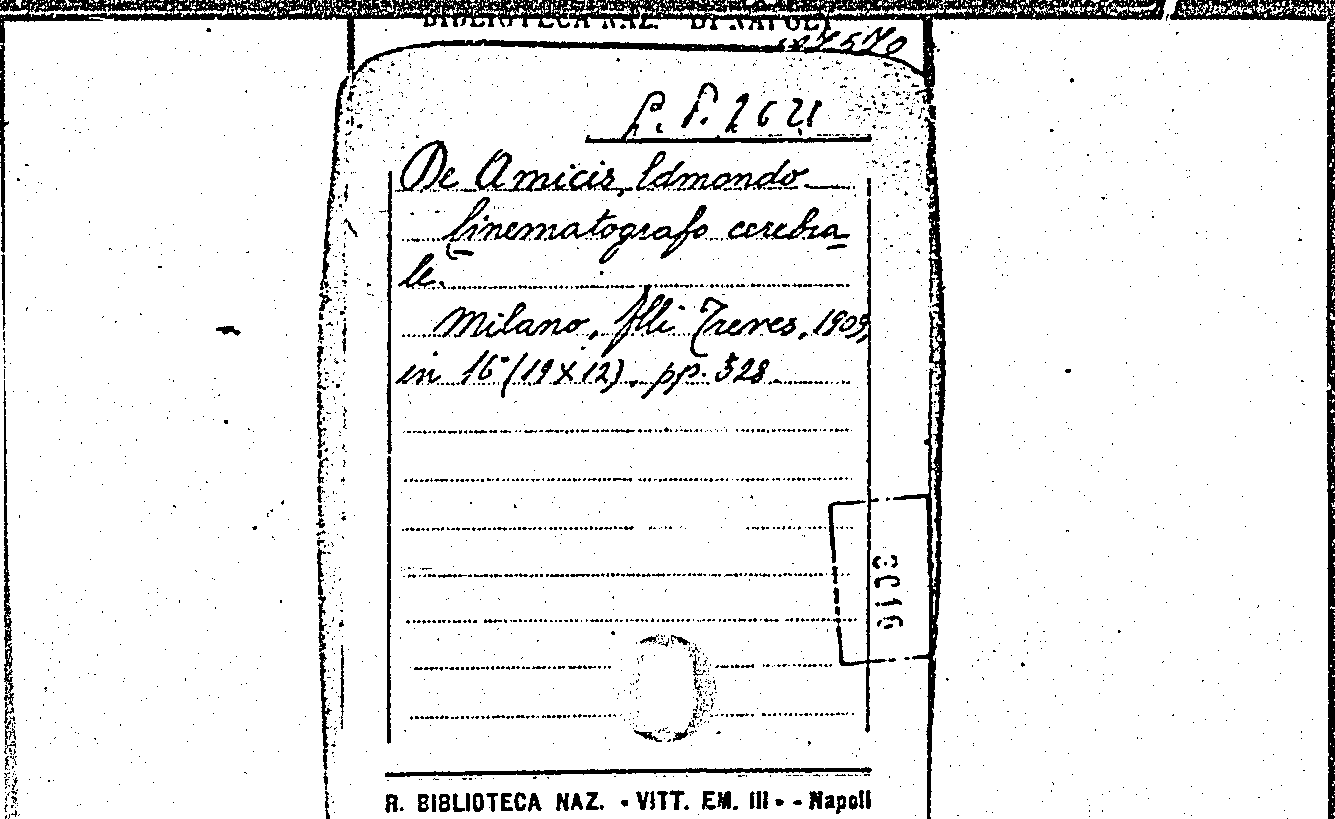 BIBLIOTECA NAZ. DI NAPOLI
L. P. 2621
De Amicis, Edmondo
Cinematografo cerebra-
le.
Milano, f.lli Treves, 1909,
in 16° (19 x 12), pp. 328.
R. BIBLIOTECA NAZ. - VITT. EM. III - - Napoli